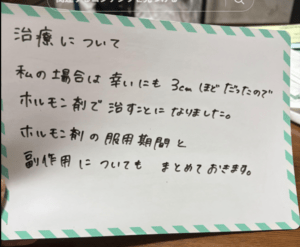 治療について
私の場合は幸いにも3cmほどだったので
ホルモン剤で治すことになりました。
ホルモン剤の服用期間と
副作用についても まとめておきます。